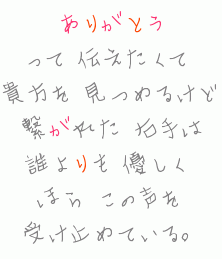 ありがとう
って伝えたくて
貴方を見つめるけど
繋がれた右手は
誰よりも優しく
ほらこの声を
受け止めている。